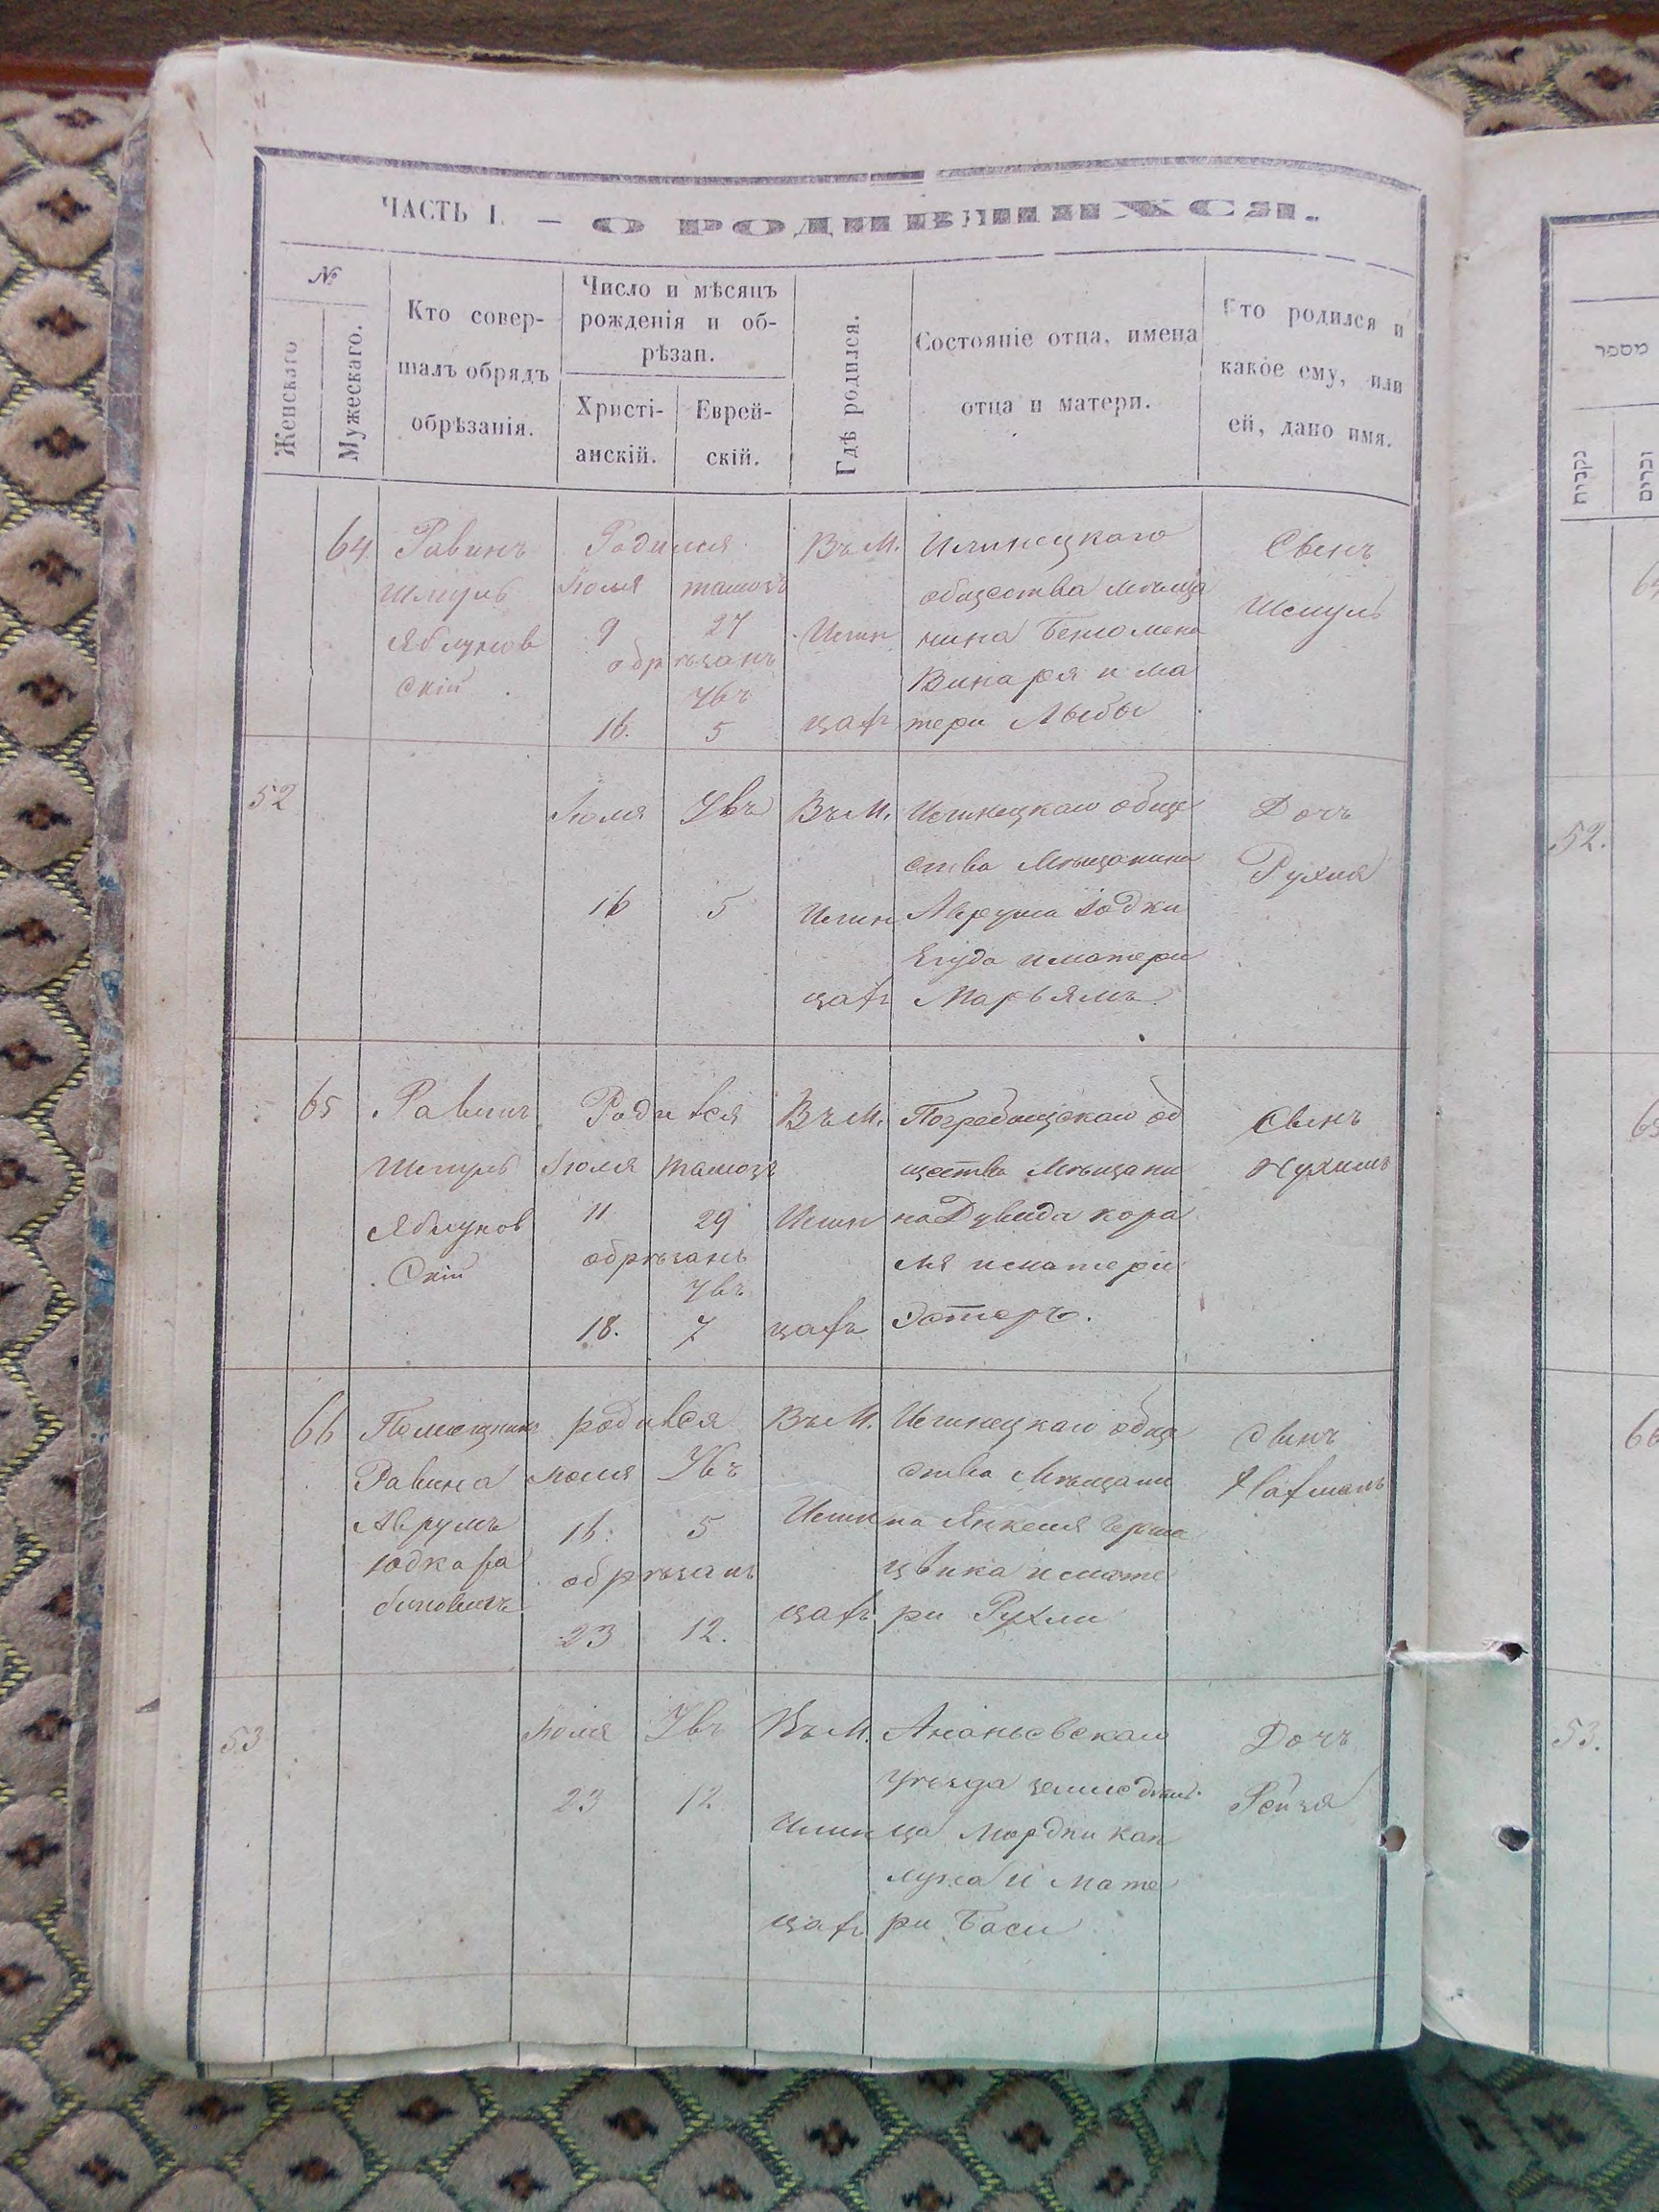 ЧАСТЬ I. — О РОДИВШИХСЯ.
№
Женскаго
Мужескаго.
Кто совер-
шалъ обрядъ
обрѣзанія.
Число и мѣсяцъ
рожденія и об-
рѣзан.
Христі-
анскій.
Еврей-
скій.
Гдѣ родился.
Состояніе отца, имена
отца и матери.
Кто родился и
какое ему, или
ей, дано имя.
64
Равинъ
Шмуль
Яблунов
скій
Родился
Июля
тамозъ
9
27
обрѣзанъ
Увъ
16.
5
Въ М.
Илин
цахъ
Илинецкаго
общества мѣща
нина
Винаря и ма
тери Лыбы
Свинъ
Шмуль
52
Июля
Увъ
16
5
Въ М.
Илин
цахъ
Илинецкаго обще
ства Мѣщанина
Аврума Іодки
Егуда и матери
Марьямъ.
Дочъ
Рухля
65
Равинъ
Шмуль
Яблунов
скій
Родився
Июля
тамозъ
11
29
обрѣзанъ
Увъ
18.
7
Въ М.
Илин
цахъ
Погребищскаго об
щества Мѣщани
на Дувида кора
ля и матери
Эстеръ.
Свинъ
Нухимъ
66
Помощникъ
Равина
Аврумъ
Юдка ра
биновичъ
родився
Июля
Увъ
16.
5
обрѣзанъ
23
12.
Въ М.
Илин
цахъ
Илинецкаго обще
ства Мѣщани
на Янкеля Герша
цвика и мате
ри Рухли
Свинъ
Нахманъ
53
Июля
Увъ
23
12
Въ М.
Илин
цахъ
Ананьевскаго
уѣзда земледѣль
ца Мордки кап
луна и мате
ри Баси
Дочъ
Рейзя
מספר
נקבות
זכרים
52.
65
66
53.